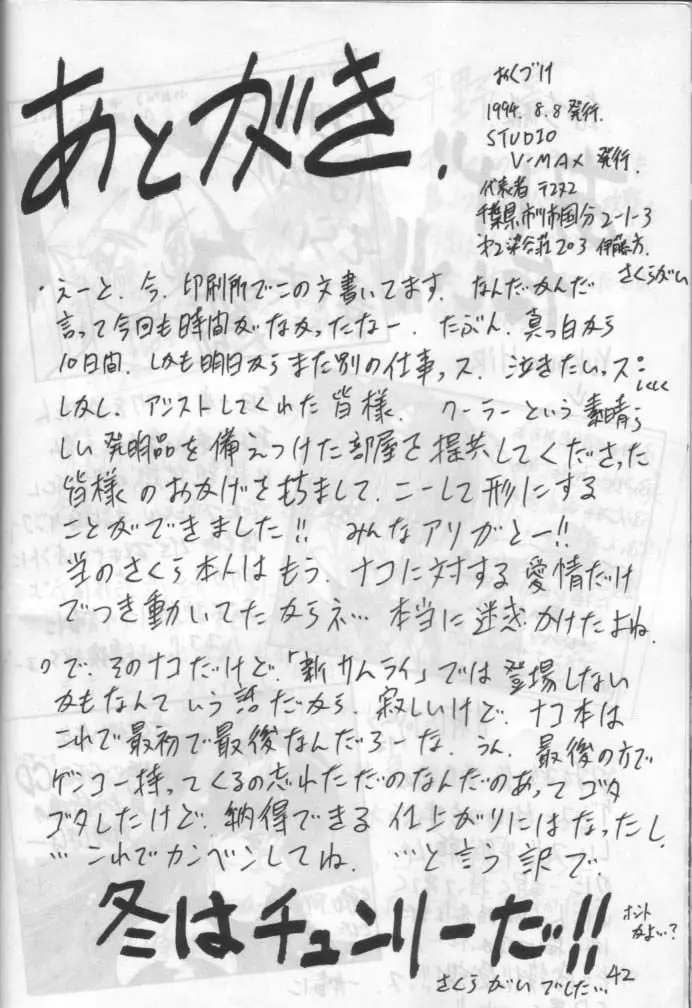 あとがき.
おくづけ
1994. 8. 8 発行.
STUDIO
V-MAX 発行.
代表者
千葉県市川市国分2-1-3
第2染谷荘203 伊藤方.
さくらがい
・えーと、今、印刷所でこの文書いてます. なんだかんだ
言って今回も時間がなかったなー. たぶん、真っ白から
10日間、しかも明日からまた別の仕事っス. 泣きたいっス:
しかし、アシストしてくれた皆様、クーラーという素晴ら
しい発明品を備えつけた部屋を提供してくださった
皆様のおかげを持ちまして、こーして形にする
ことができました!! みんなアリガとー!!
当のさくら本人はもう、ナコに対する愛情だけ
でつき動いてたからネ… 本当に迷惑かけたよね.
○で、そのナコだけど、「新サムライ」では登場しない
かもなんていう話だから、寂しいけど、ナコ本は
これで最初で最後なんだろーな、うん、最後の方で
ゲンコー持ってくるの忘れただのなんだのあってゴタ
ゴタしたけど、納得できる仕上がりにはなったし、
…これでカンベンしてね. …と言う訳で.
冬はチュンリーだッ!!
ホント
かよい?
さくらがいでした… 42